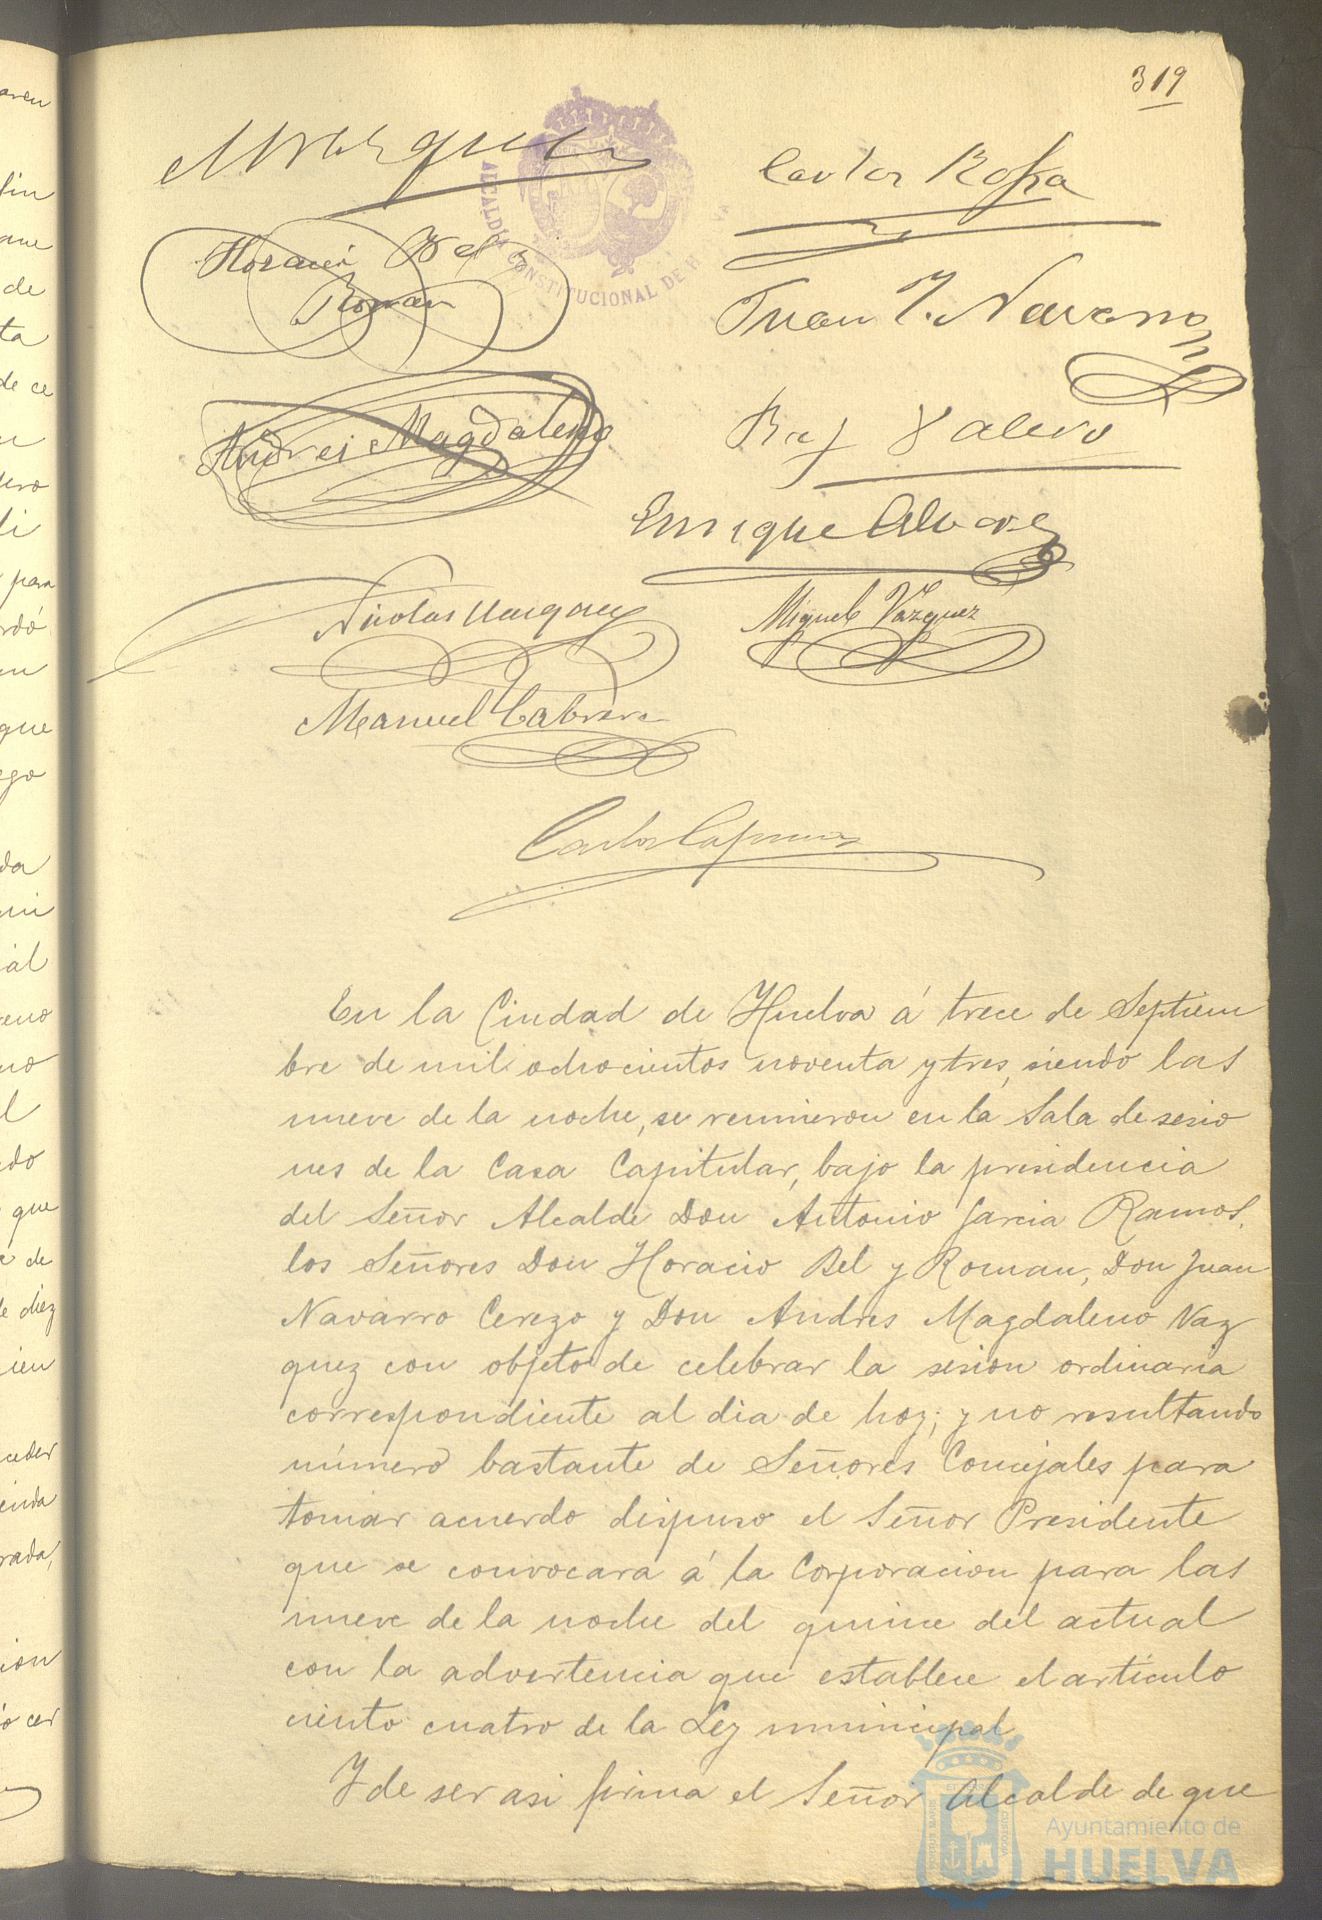 319
Carlos Rofa
Horacio Bel y
Roman
Juan J. Navarro
Andres Magdaleno
Raf Valero
Enrique Alvarez
Nicolas Vazquez
Miguel Vazquez
Manuel Cabrera
Carlos
ALCALDIA CONSTITUCIONAL DE H VA
En la Ciudad de Huelva á trece de Septiem
bre de mil ochocientos noventa y tres, siendo las
nueve de la noche, se reunieron en la Sala de sesio
nes de la Casa Capitular, bajo la presidencia
del Señor Alcalde Don Antonio Garcia Ramos,
los Señores Don Horacio Bel y Roman, Don Juan
Navarro Cerezo y Don Andres Magdaleno Vaz
quez con objeto de celebrar la sesion ordinaria
correspondiente al dia de hoy; y no resultando
número bastante de Señores Concejales para
tomar acuerdo dispuso el Señor Presidente
que se convocara á la Corporacion para las
nueve de la noche del quince del actual
con la advertencia que establece el articulo
ciento cuatro de la Ley municipal
Y de ser asi firma el Señor Alcalde de que
Ayuntamiento de
HUELVA